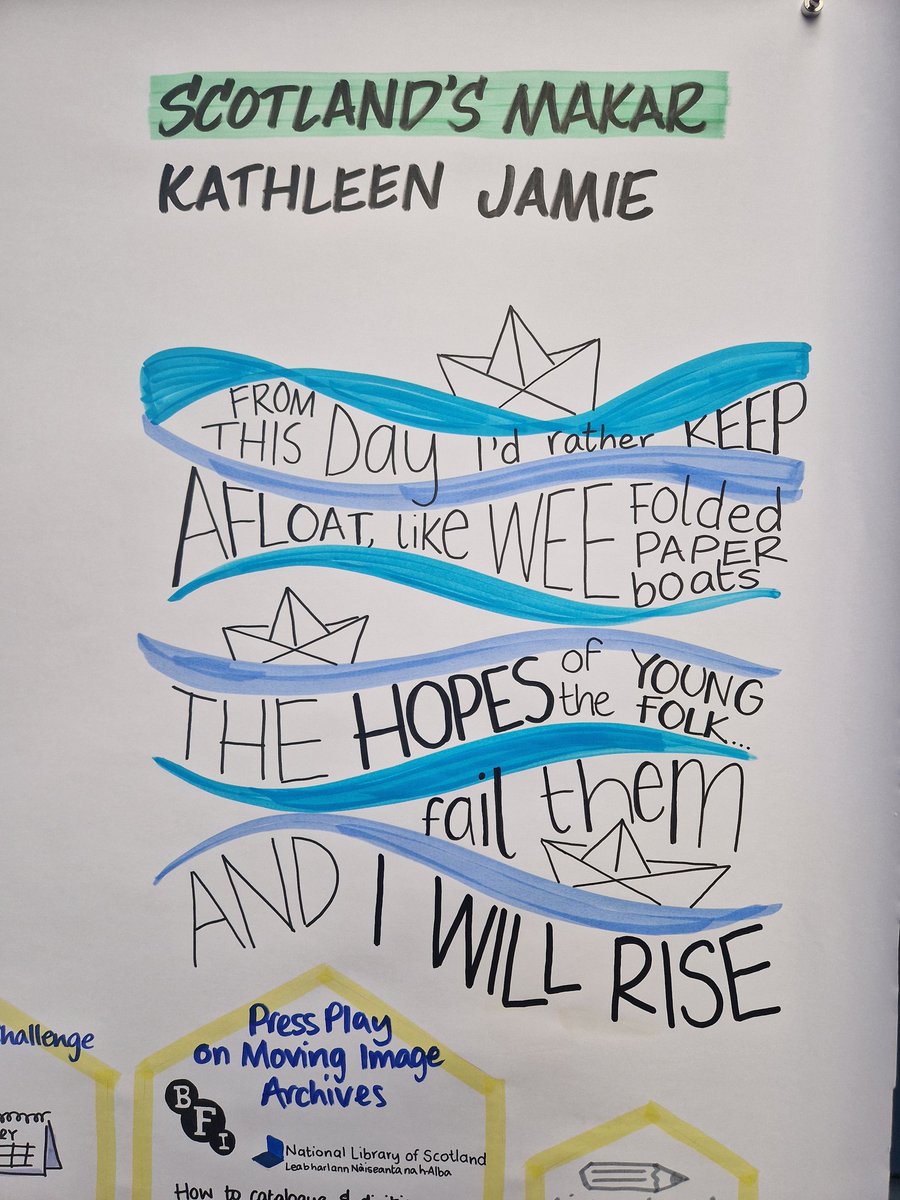 SCOTLAND'S MAKAR
KATHLEEN JAMIE
FROM THIS Day I'd rather KEEP
AFLOAT, like WEE Folded PAPER boats
THE HOPES of the YOUNG FOLK...
fail them
AND I WILL RISE
Challenge
Press Play
on Moving Image
Archives
BFI
National Library of Scotland
Leabharlann Nàiseanta na h-Alba
How to catalogue &